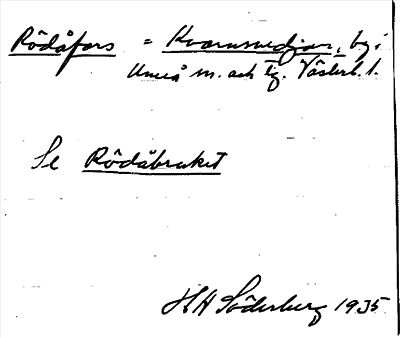 Rödåfors = Kvarnsvedjan, by i
Umeå sn. och tg. Västerb. l.
Se Rödåbruket
HH Söderberg 1935